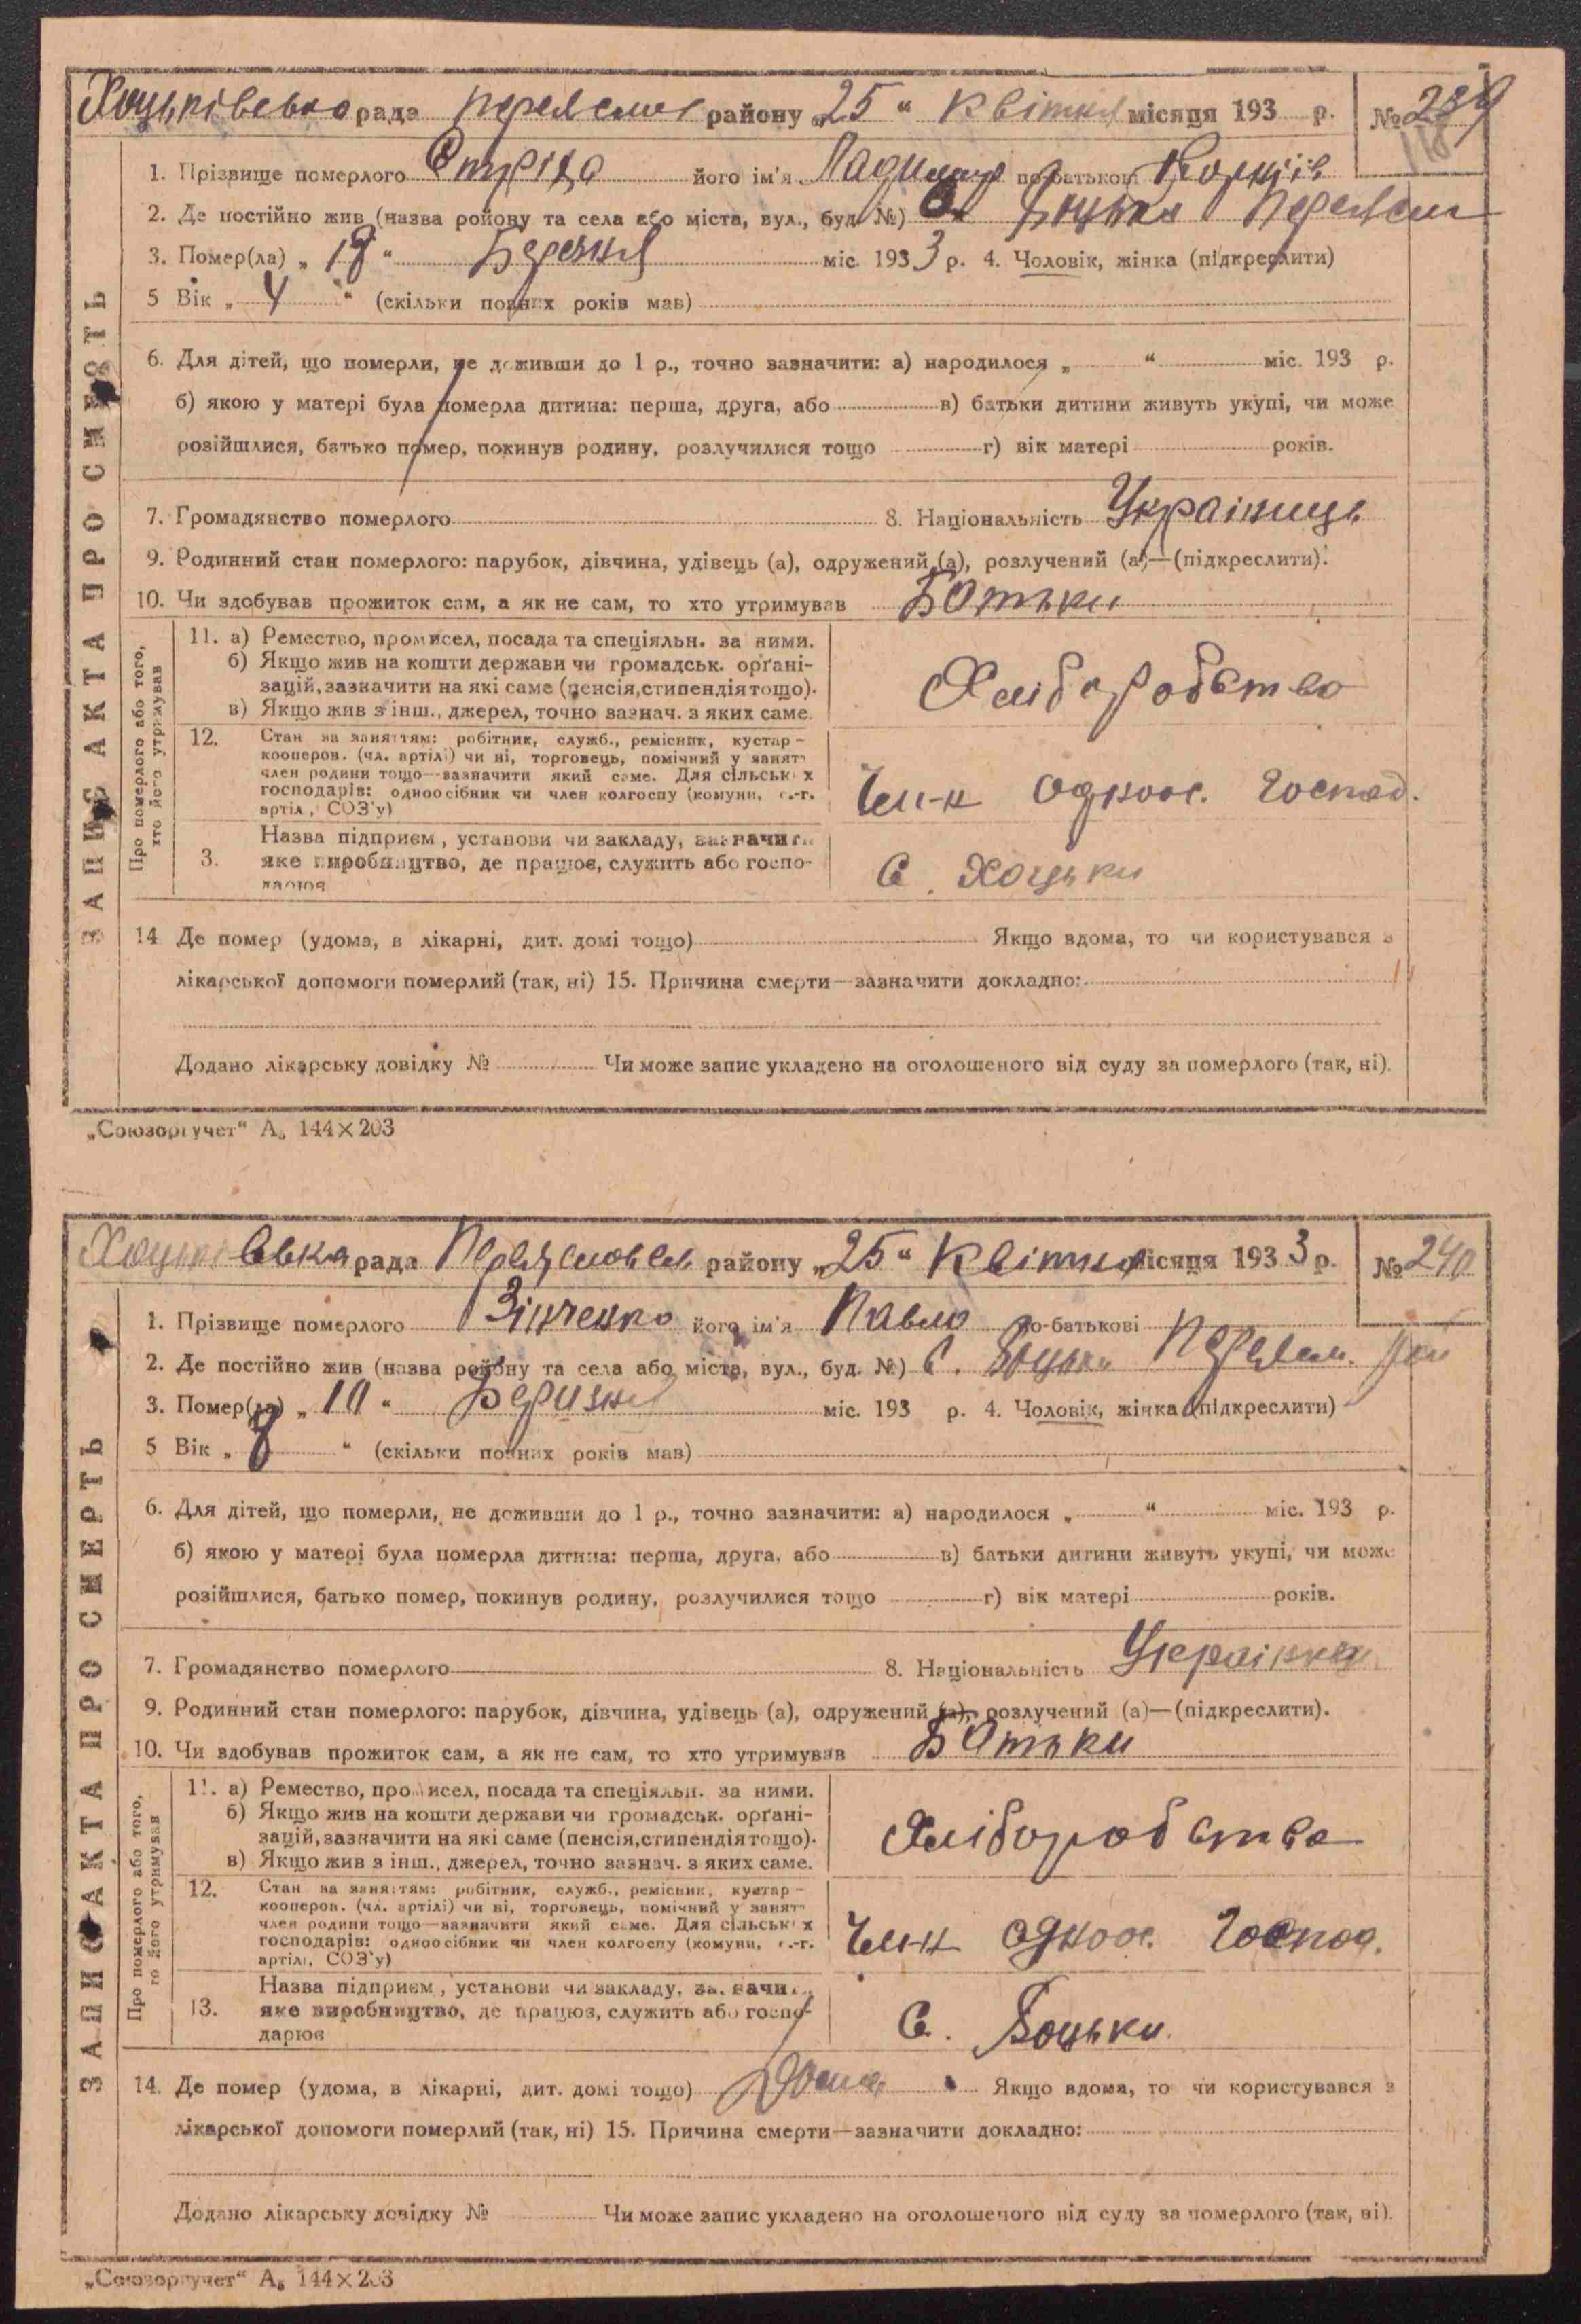 Хоцьківсько рада Переяслов району „25“ Квітня місяця 193 р. № 239
1. Прізвище померлого Стріха його ім'я по батькові
2. Де постійно жив (назва ройону та села або міста, вул., буд. №) с. Хоцьки Переясл
3. Помер(ла) „18“ Березня міс. 1933 р. 4. Чоловік, жінка (підкреслити)
5 Вік „4“ (скільки повних років мав)
6. Для дітей, що померли, не доживши до 1 р., точно зазначити: а) народилося „ “ міс. 193 р.
б) якою у матері була померла дитина: перша, друга, або в) батьки дитини живуть укупі, чи може
розійшлися, батько помер, покинув родину, розлучилися тощо г) вік матері років.
7. Громадянство померлого 8. Національність Українець
9. Родинний стан померлого: парубок, дівчина, удівець (а), одружений (а), розлучений (а)—(підкреслити).
10. Чи здобував прожиток сам, а як не сам, то хто утримував Батьки
ЗАПИС АКТА ПРО СМЕРТЬ
Про померлого або того,
хто його утримував
11. а) Ремество, промисел, посада та спеціяльн. за ними.
б) Якщо жив на кошти держави чи громадськ. орґані-
зацій, зазначити на які саме (пенсія, стипендія тощо).
в) Якщо жив з інш., джерел, точно зазнач. з яких саме.
Хліборобство
12. Стан за заняттям: робітник, служб., ремісник, кустар-
кооперов. (чл. артілі) чи ні, торговець, помічний у занятт
член родини тощо—зазначити який саме. Для сільських
господарів: одноосібник чи член колгоспу (комуни, с.-г.
артіл, СОЗ'у)
Чл-н одноос. господ.
3. Назва підприєм, установи чи закладу, зазначити
яке виробництво, де працює, служить або госпо-
дарює
С. Хоцьки
14 Де помер (удома, в лікарні, дит. домі тощо) Якщо вдома, то чи користувався з
лікарської допомоги померлий (так, ні) 15. Причина смерти—зазначити докладно:
Додано лікарську довідку № Чи може запис укладено на оголошеного від суду за померлого (так, ні).
„Союзоргучет“ А₅ 144×203
Хоцьківська рада Переясловськ району „25“ Квітня місяця 1933 р. № 240
1. Прізвище померлого Зінченко його ім'я Павло по-батькові
2. Де постійно жив (назва ройону та села або міста, вул., буд. №) С. Хоцьки Переясл. рай
3. Помер(ла) „10“ Березня міс. 193 р. 4. Чоловік, жінка (підкреслити)
5 Вік „8“ (скільки повних років мав)
6. Для дітей, що померли, не доживши до 1 р., точно зазначити: а) народилося „ “ міс. 193 р.
б) якою у матері була померла дитина: перша, друга, або в) батьки дитини живуть укупі, чи може
розійшлися, батько помер, покинув родину, розлучилися тощо г) вік матері років.
7. Громадянство померлого 8. Національність
9. Родинний стан померлого: парубок, дівчина, удівець (а), одружений (а), розлучений (а)—(підкреслити).
10. Чи здобував прожиток сам, а як не сам, то хто утримував Батьки
ЗАПИС АКТА ПРО СМЕРТЬ
Про померлого або того,
го його утримував
11. а) Ремество, промисел, посада та спеціяльн. за ними.
б) Якщо жив на кошти держави чи громадськ. орґані-
зацій, зазначити на які саме (пенсія, стипендія тощо).
в) Якщо жив з інш., джерел, точно зазнач. з яких саме.
Хліборобство
12. Стан за заняттям: робітник, служб., ремісник, кустар-
кооперов. (чл. артілі) чи ні, торговець, помічний у занятт
член родини тощо—зазначити який саме. Для сільських
господарів: одноосібник чи член колгоспу (комуни, с.-г.
артіл, СОЗ'у)
Чл-н одноос. господ.
13. Назва підприєм, установи чи закладу, зазначи
яке виробництво, де працює, служить або госпо-
дарює
С. Хоцьки.
14. Де помер (удома, в лікарні, дит. домі тощо) Дома Якщо вдома, то чи користувався з
лікарської допомоги померлий (так, ні) 15. Причина смерти—зазначити докладно:
Додано лікарську довідку № Чи може запис укладено на оголошеного від суду за померлого (так, ні).
„Союзоргучет“ А₅ 144×203